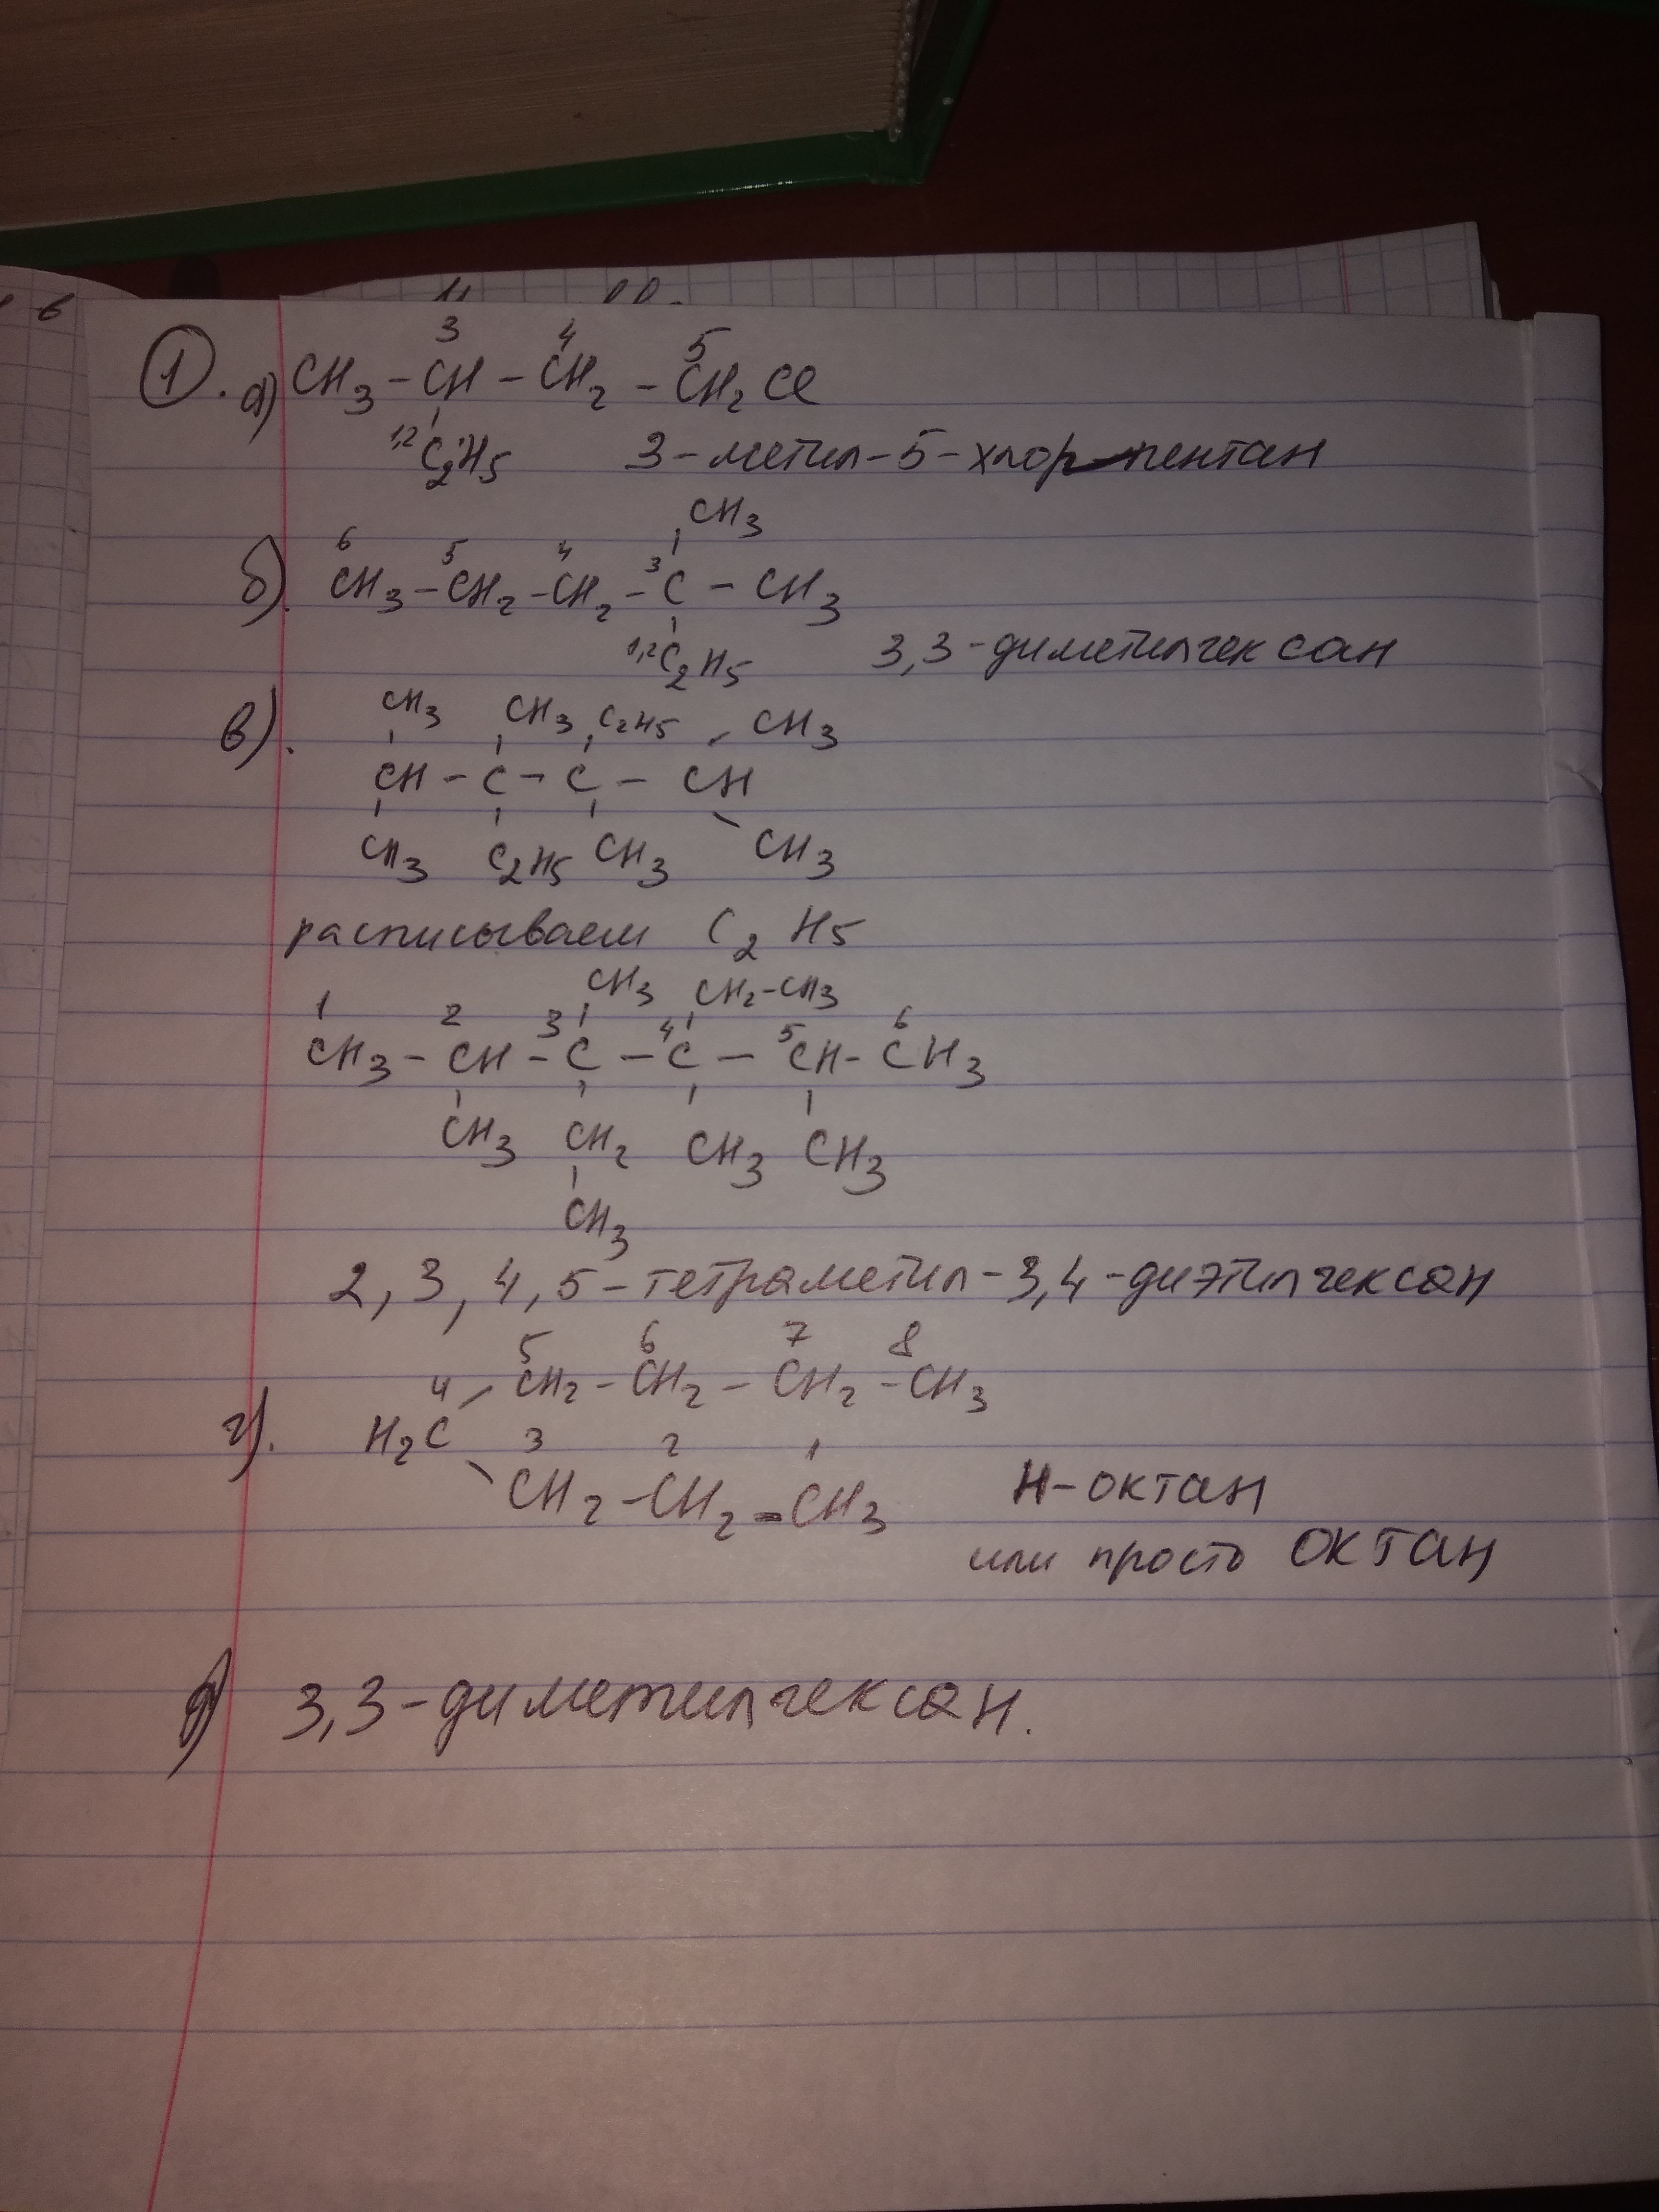 1. а) CH3 - CH - CH2 - CH2Cl
3 4 5
1,2 C2H5 3-метил-5-хлорпентан
CH3
б). CH3 - CH2 - CH2 - C - CH3
6 5 4 3
1,2 C2H5 3,3-диметилгексан
в). CH3 CH3 C2H5 CH3
CH - C - C - CH
CH3 C2H5 CH3 CH3
расписываем C2H5
CH3 CH2-CH3
1 2 3 4 5 6
CH3 - CH - C - C - CH - CH3
CH3 CH2 CH3 CH3
CH3
2,3,4,5-тетраметил-3,4-диэтилгексан
5 6 7 8
CH2 - CH2 - CH2 - CH3
г). 4 H2C
3 2 1
CH2 - CH2 - CH3 Н-октан
или просто октан
д) 3,3-диметилгексан.